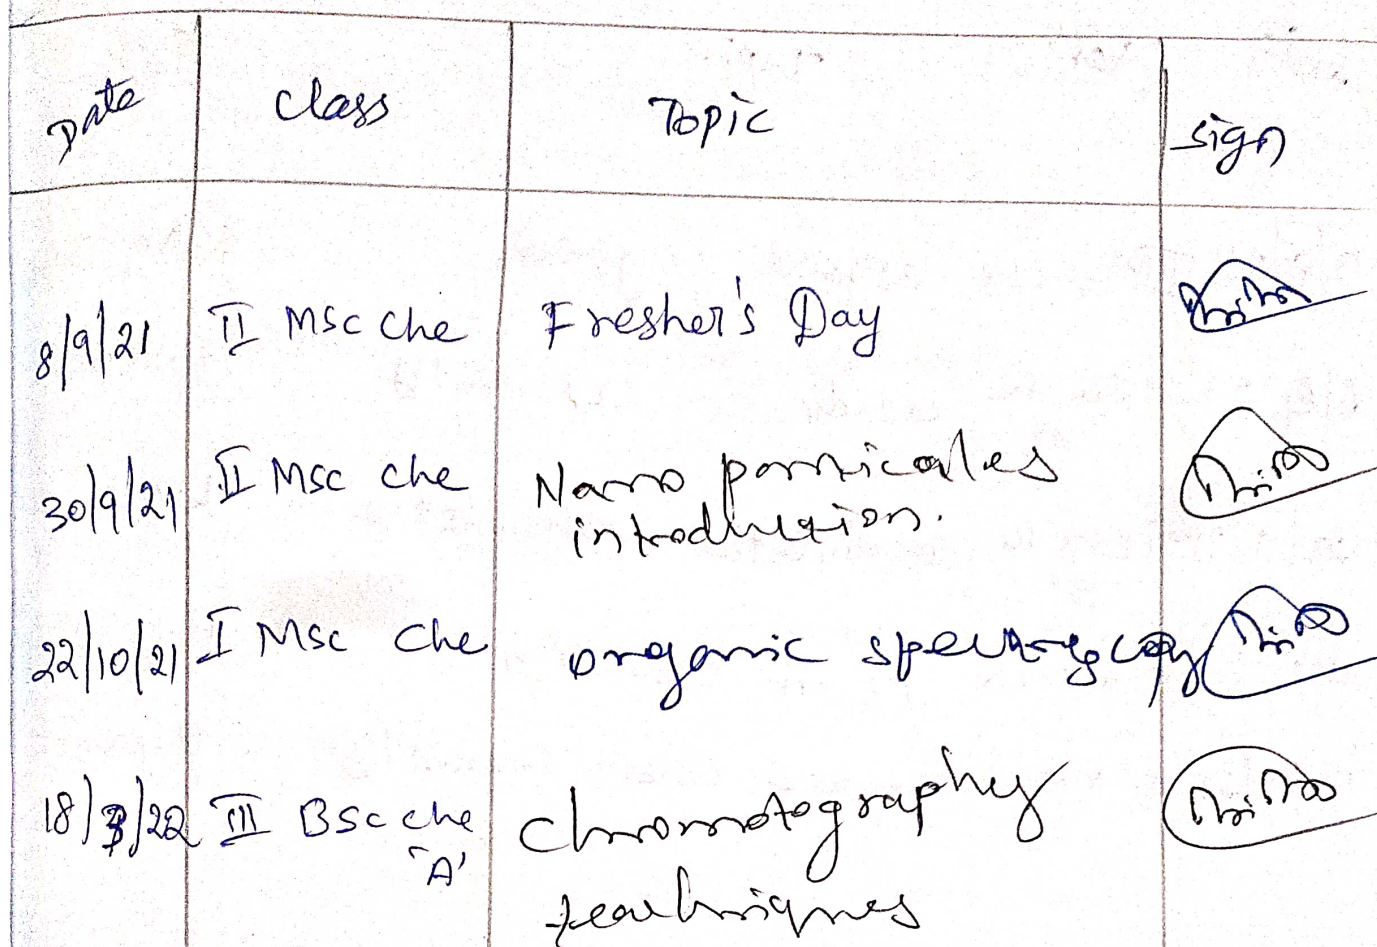 Date Class Topic sign
8/9/21 II MSc che Fresher's Day
30/9/21 II MSc che Nano particales
introduction.
22/10/21 I MSc che organic spectroscopy
18/3/22 III BSc che chromotography
'A' teachniques